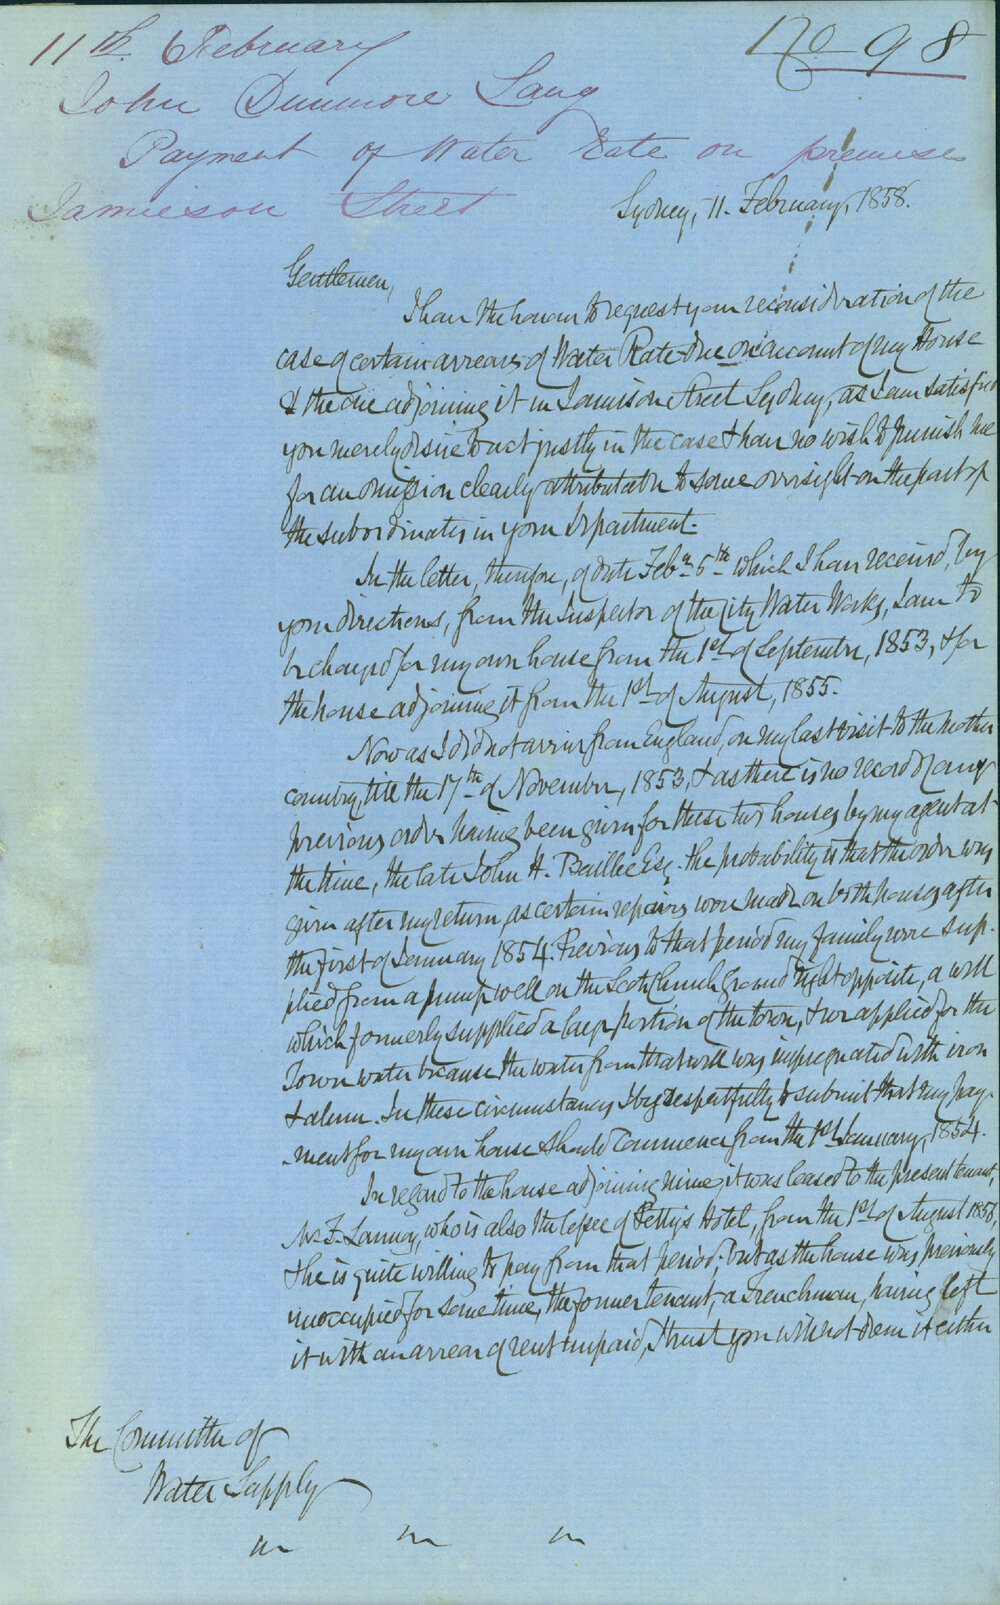 11th February
No 98
John Dunmore Lang
Payment of Water Rate on premises
Jamieson Street
Sydney, 11. February, 1858.
Gentlemen,
I have the honour to request your reconsideration of the
case of certain arrears of Water Rate due on account of my House
& the one adjoining it in Jamison Street Sydney, as I am satisfied
you merely desire to act justly in the case & have no wish to punish me
for an omission clearly attributable to some oversight on the part of
the subordinates in your Department.
In the letter, therefore, of date Feby. 5th which I have received, by
your directions, from the Inspector of the City Water Works, I am to
be charged for my own house from the 1st of September, 1853, & for
the house adjoining it from the 1st of August, 1855.
Now as I did not arrive from England, on my last visit to the mother
country, till the 17th of November, 1853, & as there is no record of any
previous order having been given for these two houses by my agent at
the time, the late John H. Baillie Esq. the probability is that the order was
given after my return, as certain repairs were made on both houses after
the first of January 1854. Previous to that period my family were sup-
plied from a pump well on the Scots Church ground right opposite, a well
which formerly supplied a large portion of the town, & we applied for the
Town water because the water from that well was impregnated with iron
& alum. In these circumstances I beg respectfully to submit that my pay-
-ment for my own house should commence from the 1st January, 1854.
In regard to the house adjoining mine, it was leased to the present tenant,
Mr. F. who is also the lessee of Petty's Hotel, from the 1st of August 1856,
& he is quite willing to pay from that period; but as the house was previously
unoccupied for some time, the former tenant, a Frenchman, having left
it with an arrear of rent unpaid, I trust you will not deem it either
The Committee of
Water Supply